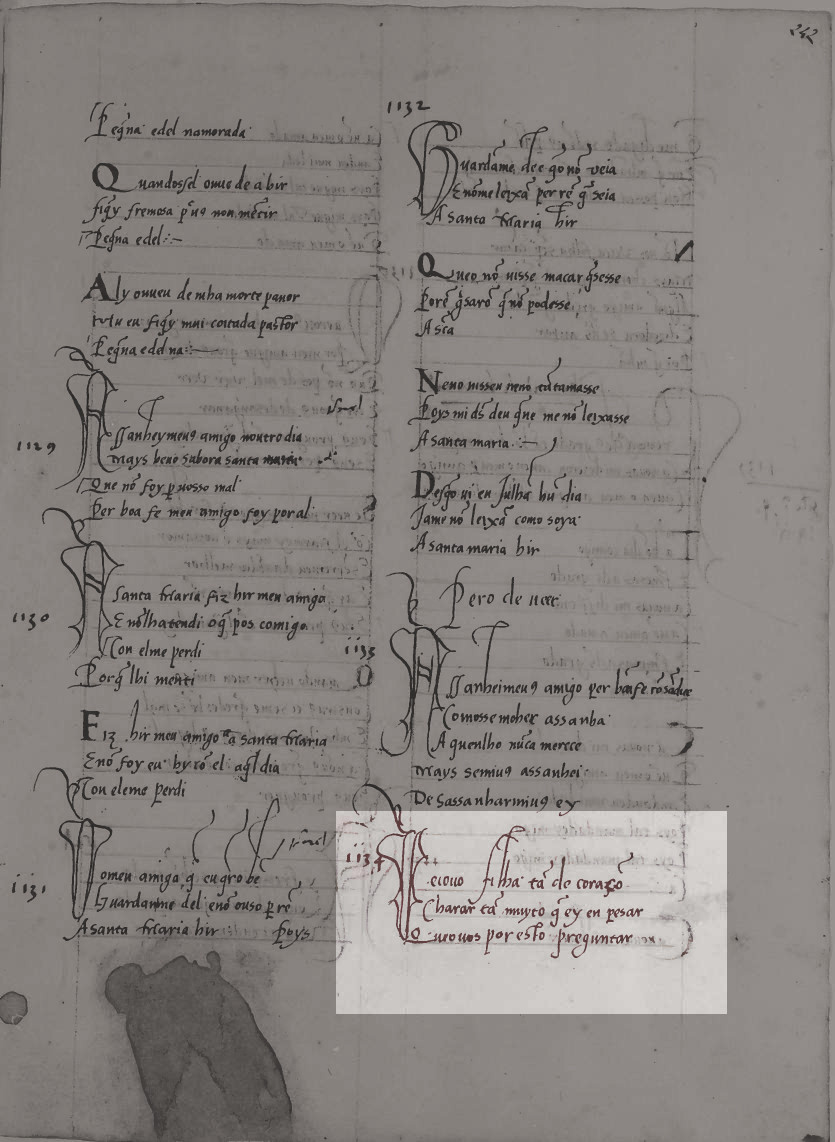 242
Pegna edel namorada
Quandossel ouue de a bir
fiq̃y fremosa p̃ uꝯ non mẽtir
Pegna edel:~
Aly ouueu de mha morte pauor
hu eu fiq̃y mui coitada pastor
Pegna edel na:~
1129
Assanheymeuꝯ amigo noutro dia
Mays beno sabora santa maria
Que nõ foy p̱ uosso mal
Per boa fe meu amigo foy por al
1130
A Santa Maria fiz hir meu amigo
E nõ lhatendi o q̃ pos comigo
Con elme perdi
Porq̃ lhi menti
Fiz hir meu amigo a santa Maria
E nõ foy eu hy cõ el aq̃l dia
Con eleme perdi
1131
Nomeu amigo q̃ eu gro bẽ
Guardanme del enõ ouso per rẽ
A santa Maria hir :~ Poys
1132
Guardãme de e gõ nõ ueia
E nõme leixã per rẽ q̃ seia
A Santa Maria hir
Queo nõ uisse macar q̃sesse
Porẽ g̃saro q̃ nõ podesse
A sc̃a
Neno uisseu neno tã tamasse
Poys mi ds̃ deu q̃ne me nõ leixasse
A santa maria :~
Desq̃o ui en Julhã hũ dia
Jame nõ leixã como soya
A santa maria hir
Pero de ueer
1133
Assanheimeuꝯ amigo per bõafe cõ sãdiçe
Comosse molher assanha
A quenlho nũca merece
Mays semiuꝯ assanhei
Desassanharmiuꝯ ey
1134
Veiouo filha tã de coraçõ
Charar tã muyto q̃ ey en pesar
Queouos por esto preguntar